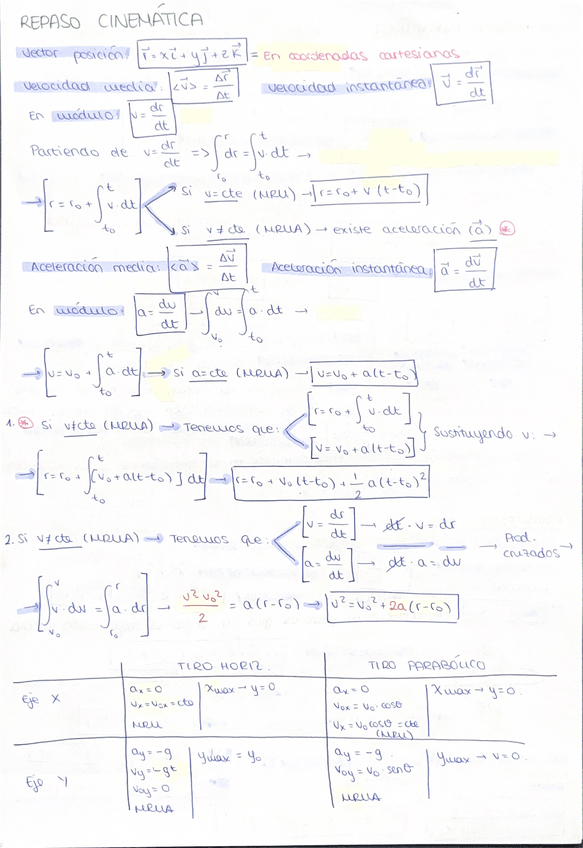 REPASO CINEMÁTICA
Vector posición: r⃗ = xi⃗ + yj⃗ + zk⃗ = En coordenadas cartesianas
Velocidad media: <v⃗> = Δr⃗/Δt Velocidad instantánea: v⃗ = dr⃗/dt
En módulo: v = dr/dt
Partiendo de v = dr/dt => ∫_{r₀}^{r} dr = ∫_{t₀}^{t} v·dt →
→ [r = r₀ + ∫_{t₀}^{t} v·dt] Si v=cte (MRU) → r = r₀ + v(t-t₀)
Si v≠cte (MRUA) → existe aceleración (a⃗) *
Aceleración media: <a⃗> = Δv⃗/Δt Aceleración instantánea: a⃗ = dv⃗/dt
En módulo: a = dv/dt → ∫_{v₀}^{v} dv = ∫_{t₀}^{t} a·dt →
→ [v = v₀ + ∫_{t₀}^{t} a·dt] → Si a=cte (MRUA) → v = v₀ + a(t-t₀)
1. * Si v≠cte (MRUA) → Tenemos que: [r = r₀ + ∫_{t₀}^{t} v·dt] [v = v₀ + a(t-t₀)] } Sustituyendo v: →
→ [r = r₀ + ∫_{t₀}^{t} [v₀ + a(t-t₀)] dt] → r = r₀ + v₀(t-t₀) + 1/2 a(t-t₀)²
2. Si v≠cte (MRUA) → Tenemos que: [v = dr/dt] → dt·v = dr
[a = dv/dt] → dt·a = dv → Prod. cruzados →
→ [∫_{v₀}^{v} v·dv = ∫_{r₀}^{r} a·dr] → v² v₀²/2 = a(r-r₀) → v² = v₀² + 2a(r-r₀)
TIRO HORIZ. TIRO PARABÓLICO
Eje X
aₓ = 0 Xmax → y=0
vₓ = v₀ₓ = cte
MRU
aₓ = 0 Xmax → y=0.
v₀ₓ = v₀·cosθ
vₓ = v₀cosθ = cte
(MRU)
Eje Y
ay = -g ymax = y₀
vy = -gt
v₀y = 0
MRUA
ay = -g. ymax → v=0.
v₀y = v₀·senθ
MRUA